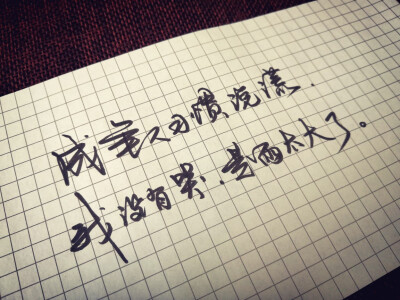 成年人习惯说谎.
我没有哭,是雨太大了。